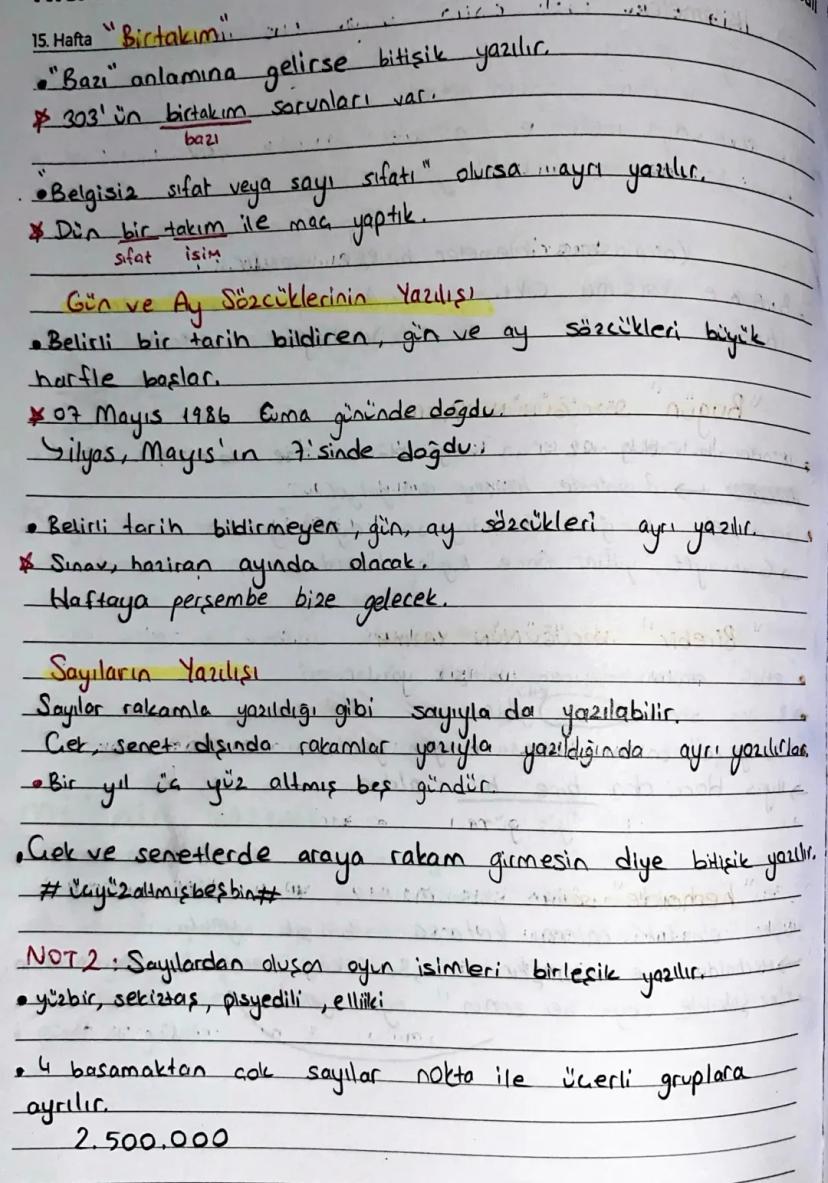 15. Hafta "Birtakım"
• "Bazı" anlamına gelirse bitişik yazılır.
* 303'ün birtakım sorunları var.
bazı
• Belgisiz sıfat veya sayı sıfatı" olursa ayrı yazılır.
* Dün bir takım ile maç yaptık.
sıfat isim
Gün ve Ay Sözcüklerinin Yazılışı
• Belirli bir tarih bildiren, gün ve ay sözcükleri büyük
harfle başlar.
* 07 Mayıs 1986 Cuma gününde doğdu.
↳ilyas, Mayıs'ın 7'sinde doğdu.
• Belirli tarih bildirmeyen, gün, ay sözcükleri ayrı yazılır.
* Sınav, haziran ayında olacak.
Haftaya perşembe bize gelecek.
Sayıların Yazılışı
Sayılar rakamla yazıldığı gibi sayıyla da yazılabilir.
Çek, senet dışında rakamlar yazıyla yazıldığında ayrı yazılırlar.
• Bir yıl üç yüz altmış beş gündür.
• Çek ve senetlerde araya rakam girmesin diye bitişik yazılır.
# üçyüzaltmışbeşbin#
NOT 2: Sayılardan oluşan oyun isimleri birleşik yazılır.
• yüzbir, sekiztaş, pisyedili, elliiki
• 4 basamaktan çok sayılar nokta ile üçerli gruplara
ayrılır.
2.500.000